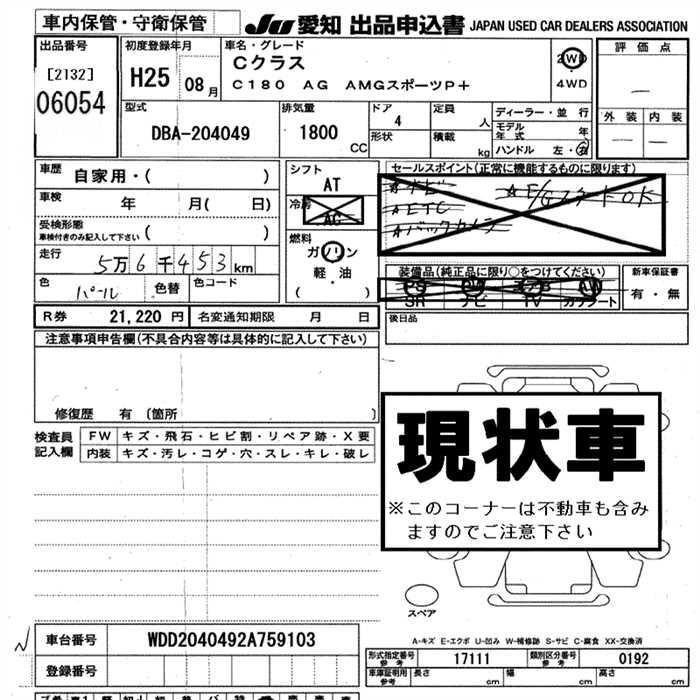 車内保管・守衛保管
JU 愛知 出品申込書 JAPAN USED CAR DEALERS ASSOCIATION
出品番号
[2132]
06054
初度登録年月
H25 08月
車名・グレード
Cクラス
C180 AG AMGスポーツP+
2WD
4WD
評価点
—
外装 内装
— —
型式
DBA-204049
排気量
1800
CC
ドア
4
形状
定員
人
積載
kg
ディーラー・並行
モデル年式 年
ハンドル 左・右
車歴
自家用・( )
車検 年 月( 日)
受検形態
車検付きのみ記入して下さい ( )
走行 5万6千453km
色 パール 色替 色コード
シフト
AT
冷房
AC
燃料
ガソリン
軽・油
( )
セールスポイント(正常に機能するものに限ります)
☆ナビ
☆ETC
☆バックカメラ
装備品(純正品に限り○をつけてください)
PS
SR ナビ TV カワシート
新車保証書
有・無
R券 21,220円 名変通知期限 月 日
後日品
注意事項申告欄(不具合内容等は具体的に記入して下さい)
修復歴 有 〔箇所 〕
検査員記入欄
FW キズ・飛石・ヒビ割・リペア跡・X要
内装 キズ・汚レ・コゲ・穴・スレ・キレ・破レ
現状車
※このコーナーは不動車も含み
ますのでご注意下さい
スペア
A-キズ E-エクボ U-凹み W-補修跡 S-サビ C-腐食 XX-交換済
車台番号 WDD2040492A759103
登録番号
形式指定番号 参考 17111 類別区分番号 参考 0192
車庫証明用 参考 長さ cm 幅 cm 高さ cm